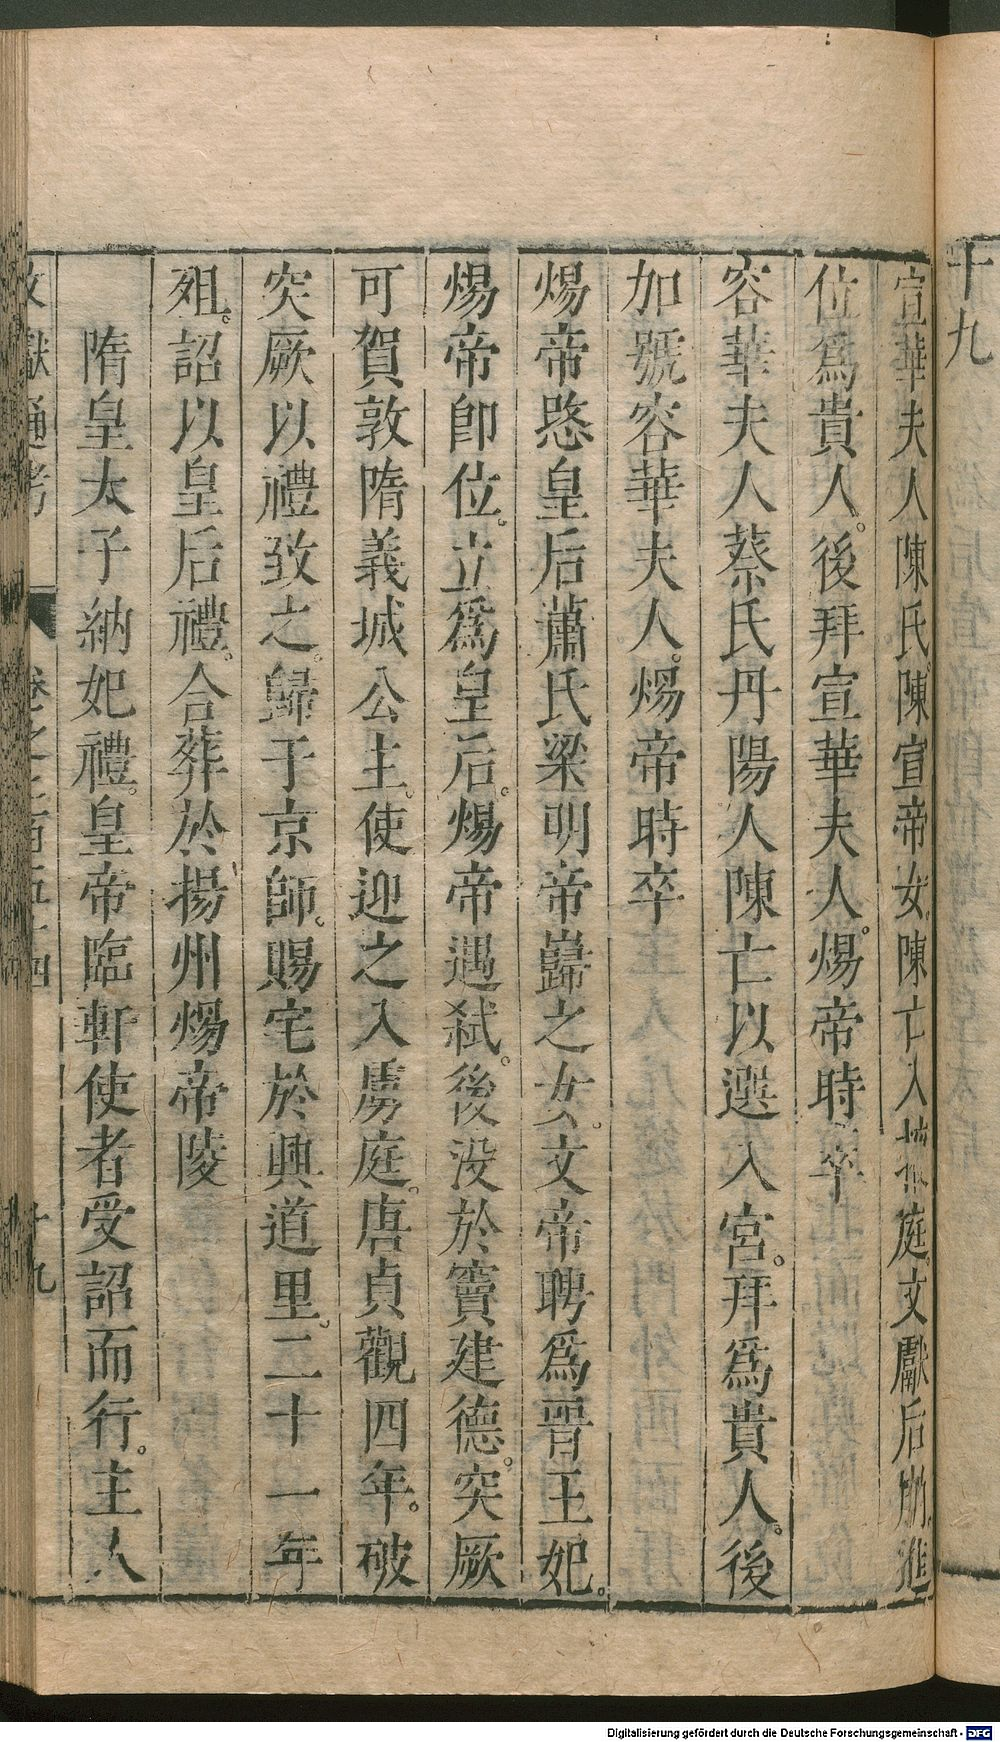 十九
宣華夫人陳氏陳宣帝女陳亡入掖庭。文獻后崩。進
位爲貴人。後拜宣華夫人。煬帝時卒
容華夫人蔡氏丹陽人陳亡以選入宮。拜爲貴人。後
加號容華夫人。煬帝時卒
煬帝愍皇后蕭氏梁明帝巋之女。文帝聘爲晋王妃。
煬帝卽位。立爲皇后。煬帝遇弑。後没於竇建德。突厥
可賀敦隋義城公主。使迎之入虜庭。唐貞觀四年。破
突厥以禮致之。歸于京師。賜宅於興道里。二十一年
殂。詔以皇后禮。合葬於揚州煬帝陵
隋皇太子納妃禮。皇帝臨軒使者受詔而行。主人
文獻通考 卷之二百五十四 十九
Digitalisierung gefördert durch die Deutsche Forschungsgemeinschaft - DFG